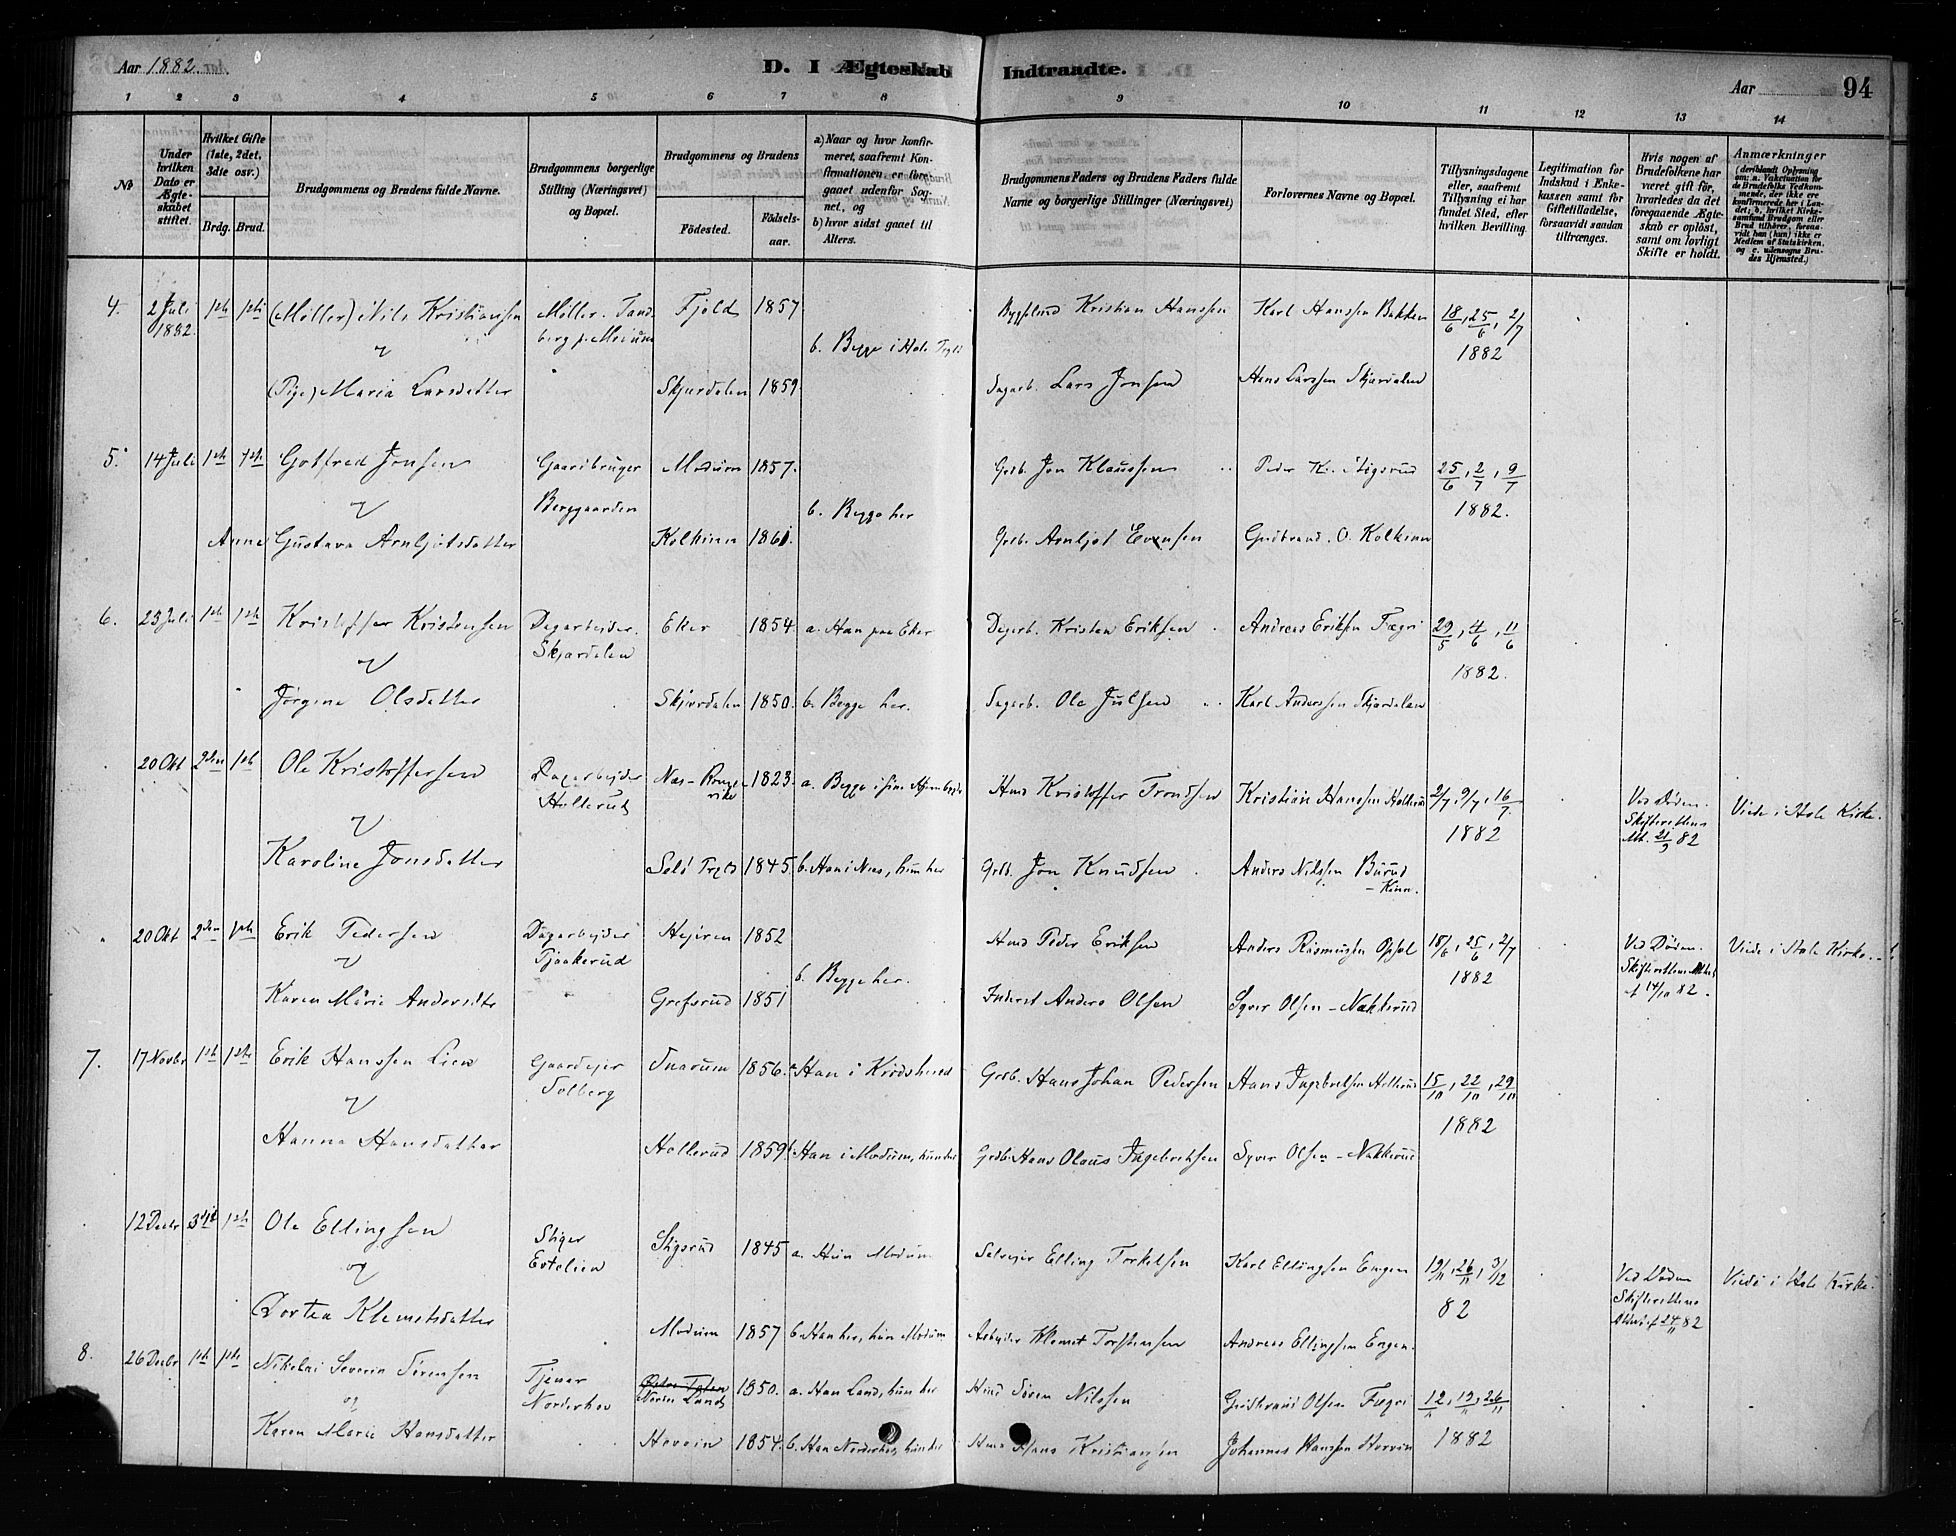 Aar 1882.
D. I Ægteskab Indtraadte.
Aar
94
1 2 3 4 5 6 7 8 9 10 11 12 13 14
No
Under hvilken Dato er Ægteskabet stiftet.
Hvilket Gifte (1ste, 2det, 3die osv.)
Brdg. Brud.
Brudgommens og Brudens fulde Navne.
Brudgommens borgerlige Stilling (Næringsvei) og Bopæl.
Brudgommens og Brudens
Födested.
Födselsaar.
a) Naar og hvor konfirmeret, saafremt Konfirmationen er foregaaet udenfor Sognet, og
b) hvor sidst gaaet til Alters.
Brudgommens Faders og Brudens Faders fulde Navne og borgerlige Stillinger (Næringsvei)
Forlovernes Navne og Bopæl.
Tillysningsdagene eller, saafremt Tillysning ei har fundet Sted, efter hvilken Bevilling.
Legitimation for Indskud i Enkekassen samt for Giftetilladelse, forsaavidt saadan tiltrænges.
Hvis nogen af Brudefolkene har været gift för, hvorledes da det foregaaende Ægteskab er oplöst, samt om lovligt Skifte er holdt.
Anmærkninger (deriblandt Oplysning om: a. Vaksination for de Brudefolks Vedkommende, der ikke ere konfirmerede her i Landet; b. hvilket Kirkesamfund Brudgom eller Brud tilhörer, forsaavidt han (hun) ikke er Medlem af Statskirken, og c. udensogns Brudes Hjemsted.)
4. 2 Juli 1882. 1ste 1ste (Møller) Nils Kristiansen Møller. Tandberg p. Modum Fjeld 1857 Kristian Hanssen Karl Hanssen Bakken 18/6, 25/6, 2/7 1882
og
b. Begge i Hole
(Pige) Maria Larsdatter Skjærdalen 1859. Dagarb. Lars Jonsen Hans Larssen Skjærdalen
5. 14 Juli 1ste 1ste Gotfred Jonsen Gaardbruger Berggaarden Modum 1857. Grdb. Jon Klaussen 25/6, 2/7, 9/7 1882.
og
b. Begge her
Anne Gustava Arnljotsdatter Kolkinn 1861. Grdb. Arnljot Evensen Gudbrand O. Kolkinn
6. 23 Juli 1ste 1ste Kristoffer Kristensen Dagarbejder. Skjærdalen Eker 1854 a. Han paa Eker Dagarb. Kristen Eriksen Andreas Eriksen Fægri 29/5, 4/6, 11/6 1882.
og
Jørgine Olsdatter Skjærdalen 1850. b. Begge her. Dagarb. Ole Julsen Karl Anderssen Skjærdalen
20 Okt 2den 1ste Ole Kristoffersen Dagarbejder Hollerud Næs-Romerike 1823. a. Begge i sine Hjembygder Hmd Kristoffer Trondsen Kristian Hanssen Hollerud 2/7, 9/7, 16/7 1882 Ved Døden. Skifterettens Att. 21/9 82 Viede i Hole Kirke.
og
Karoline Jonsdatter 1845. b. Han i Næs, hun her Grdb. Jon Knudsen Anders Nilssen Burud
20 Okt 2den 1ste Erik Pedersen Dagarbejder Tjaakerud 1852 Hmd Peder Eriksen Anders Rasmussen Opsal 18/6, 25/6, 2/7 1882 Ved Døden. Skifterettens Attest af 14/10 82. Viede i Hole Kirke.
og
b. Begge her.
Karen Marie Andersdtr Grefsrud 1851 Inderst Anders Olsen Syver Olsen - Nakkerud
7. 17 Novbr 1ste 1ste Erik Hanssen Lien Gaardejer Solberg Snarum 1856. a. Han i Krødsherred Grdb. Hans Johan Pedersen Hans Ingebretsen Hollerud 15/10, 22/10, 29/10 1882
og
Hanna Hansdatter Hollerud 1859 b. Han i Modum, hun her Grdb. Hans Olaus Ingebretsen Syver Olsen - Nakkerud
12 Decbr 3die 1ste Ole Ellingsen Stiger Evtelien Stigsrud 1845 a. Hun Modum Selvejer Elling Torkelsen Karl Ellingsen Engen 19/11, 26/11, 3/12 82 Ved Døden Skifterettens Attest 24/11 82 Viede i Hole Kirke.
og
Dortea Klemetsdatter Modum 1857 b. Han her, hun Modum Arbejder Klemet Torstensen Andreas Ellingsen Engen.
8. 26 Decbr 1ste 1ste Nikolai Severin Sørensen Tjener Norderhov Østre Toten Nordre Land 1850. a. Han Land, hun her Hmd Søren Nilssen Gudbrand Olsen Fægri 12/11, 19/11, 26/11 1882
og
Karen Marie Hansdatter Hovein 1854. b. Han Norderhov, hun her Hmd Hans Kristiansen Johannes Hanssen Horvin